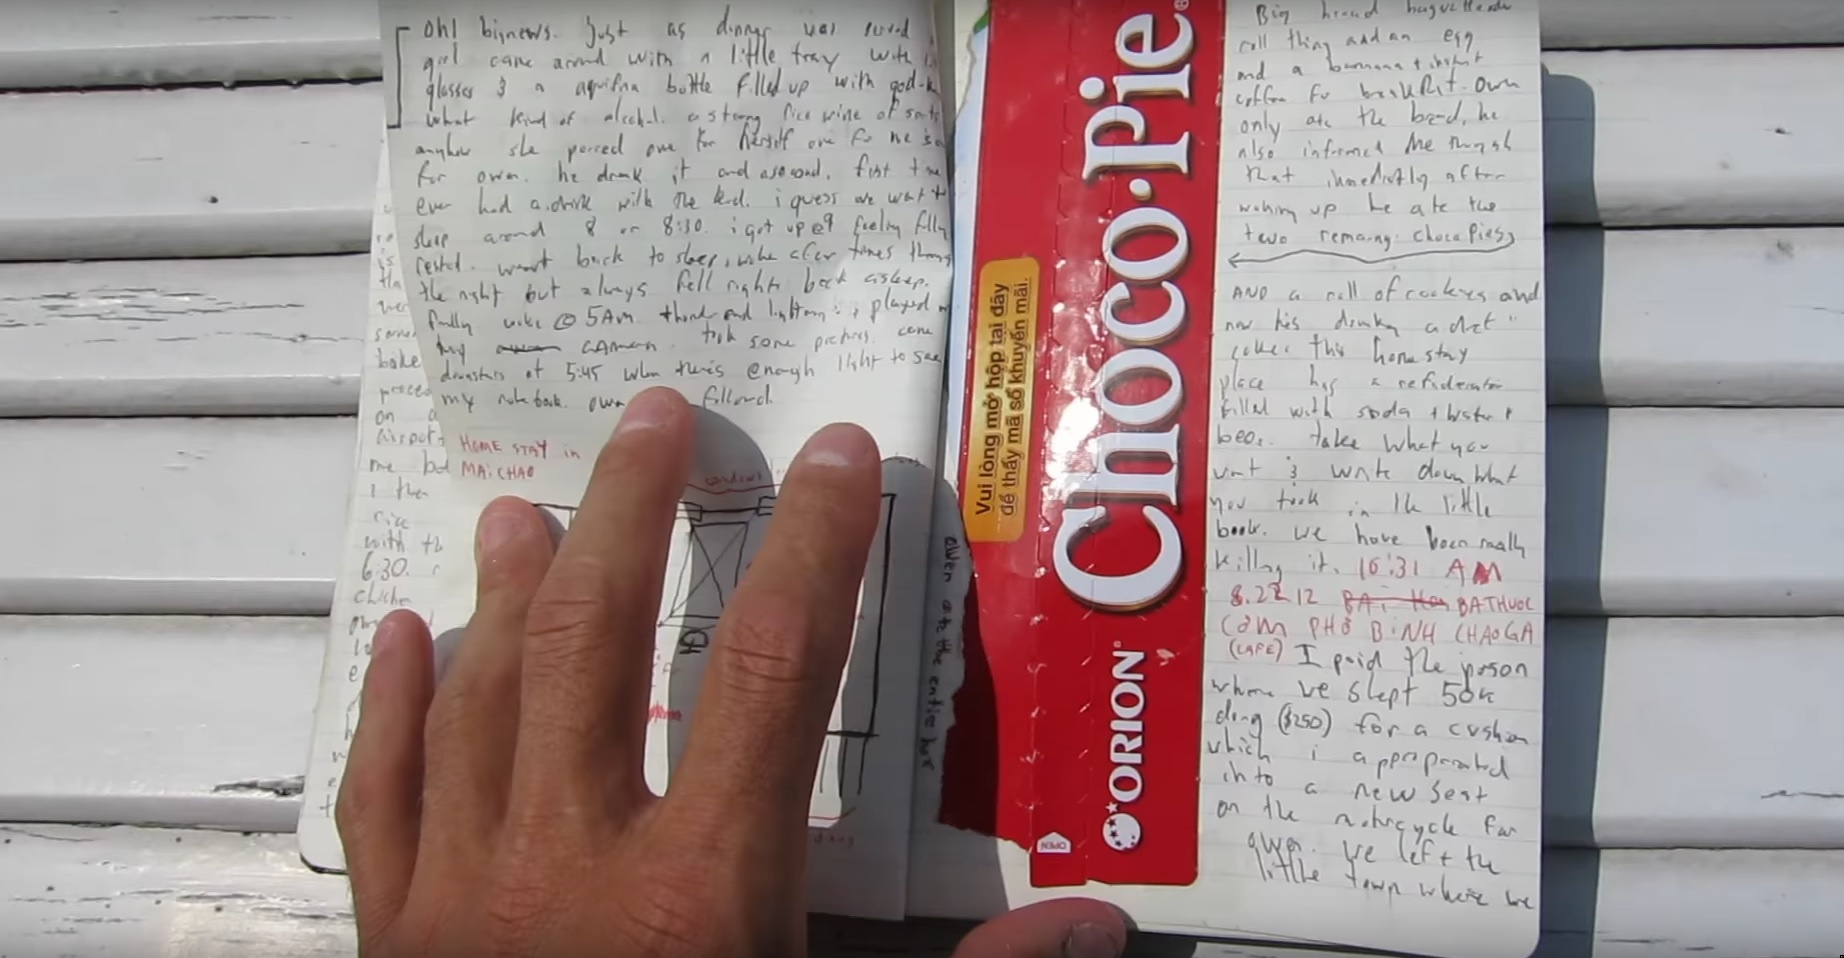 oh! big news. Just as dinner was served
girl came around with a little tray with
glasses & a aquifina bottle filled up with god-
what kind of alcohol. a strong rice wine of sorts
anyhow she poored one for herself one for me
for owen. he drank it and a second. first time
ever had a drink with the kid. i guess we want to
sleep around 8 or 8:30. i got up @ 9 feeling fully
rested. want back to sleep, woke a few times
the night but always fell right back asleep.
finally woke @ 5Am. and lightning. i played
my CAMERA. took some pictures. came
downstairs at 5:45 when theres enough light to see
my notebook. owen followed.
HOME STAY in
MAi CHAO
boke
proceed
on a
me but
i then
rice
with th
6:30.
chicken
windows
owen ate the entire box
Vui lòng mở hộp tại đây
để thấy mã số khuyến mãi.
Choco·Pie®
ORION
OPEN
Big bread baguette
roll thing and an egg
and a bannana + instant
coffee for breakfst. Owen
only ate the bread, he
also informed me though
that immedietly after
waking up he ate the
two remaing choco Pies
AND a roll of cookies and
now his drinking a diet
coke. this homestay
place has a refriderator
filled with soda + water +
beer. take what you
want & write down what
you took in the little
book. we have been really
killing it. 10:31 AM
8.22 12 BATHUOC
CƠM PHỞ BiNH CHAOGA
(CAFE) I paid the person
where we slept 50k
dong ($250) for a cushion
which i appropriated
into a new seat
on the motorcycle for
owen. we left the
little town where we